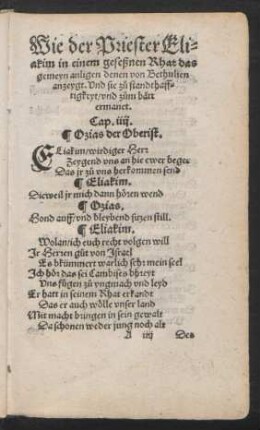 Wie der Priester Eli-
akim in einem geseßnen Rhat das
gemeyn anligen denen von Bethulien
anzeygt. Vnd sie zů standthaff-
tigkeyt/ vnd zům bätt
ermanet.
Cap. iiij.
¶ Ozias der Oberist.
ELiakim/ wirdiger Herr
Zeygend vns an hie ewer beger
Das jr zů vns herkommen send
¶ Eliakim.
Dieweil jr mich dann hören wend
¶ Ozias.
Hond auff/ vnd bleybend sitzen still.
¶ Eliakim.
Wolan/ ich euch recht volgen will
Ir Herren gůt von Israel
Es bkümmert warlich sehr mein seel
Ich hör das sei Cambises bhreyt
Vns fügen zů vngmach vnd leyd
Er hatt in seinem Rhat erkandt
Das er auch wölle vnser land
Mit macht bringen in sein gewalt
Da schonen weder jung noch alt
A iiij Des